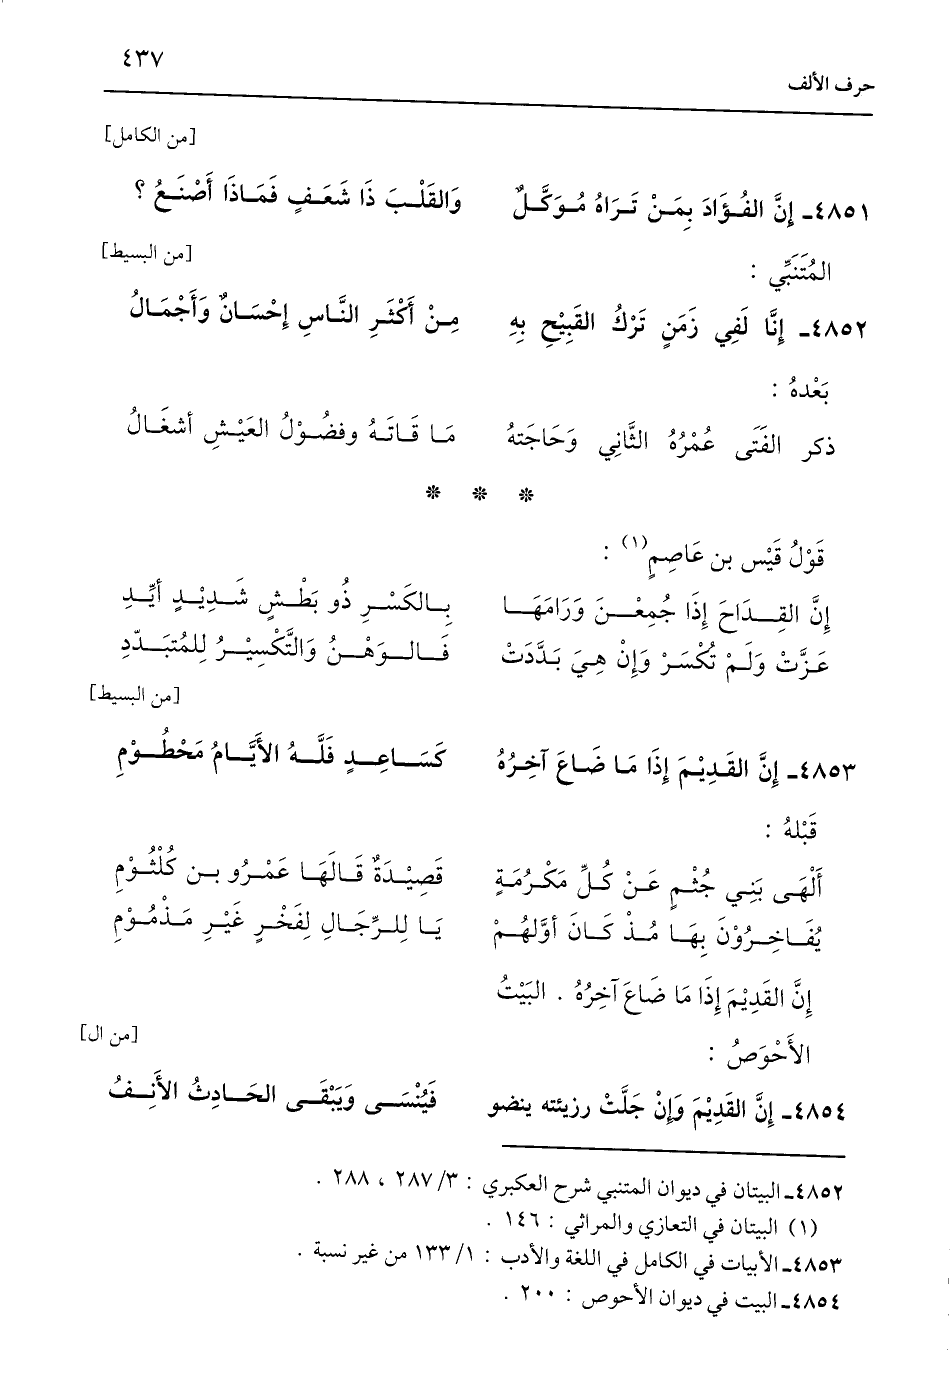 ٤٣٧
حرف الألف
[من الكامل]
٤٨٥١ـ إِنَّ الفُؤَادَ بِمَنْ تَرَاهُ مُوَكَّلٌ وَالقَلْبَ ذَا شَعَفٍ فَمَاذَا أَصْنَعُ ؟
[من البسيط]
المُتَنَبِّي :
٤٨٥٢ـ إِنَّا لَفِي زَمَنٍ تَرْكُ القَبِيْحِ بِهِ مِنْ أَكْثَرِ النَّاسِ إِحْسَانٌ وَأَجْمَالُ
بَعْدهُ :
ذكر الفَتَى عُمْرُهُ الثَّانِي وَحَاجَتهُ مَا قَاتَهُ وفضُوْلُ العَيْشِ أشغَالُ
* * *
قَوْلُ قَيْس بن عَاصِمٍ(١) :
إِنَّ القِدَاحَ إِذَا جُمِعْنَ وَرَامَهَا بِالكَسْرِ ذُو بَطْشٍ شَدِيْدٍ أَيِّدِ
عَزَّتْ وَلَمْ تُكْسَرْ وَإِنْ هِيَ بَدَّدَتْ فَالوَهْنُ وَالتَّكْسِيْرُ لِلمُتَبَدِّدِ
[من البسيط]
٤٨٥٣ـ إِنَّ القَدِيْمَ إِذَا مَا ضَاعَ آخِرُهُ كَسَاعِدٍ فَلَّهُ الأَيَّامُ مَحْطُوْمِ
قَبْلهُ :
أَلْهَى بَنِي جُثْمٍ عَنْ كُلِّ مَكْرُمَةٍ قَصِيْدَةٌ قَالَهَا عَمْرُو بن كُلْثُوْمِ
يُفَاخِرُوْنَ بِهَا مُذْ كَانَ أوَّلهُمْ يَا لِلرِّجَالِ لِفَخْرٍ غَيْرِ مَذْمُوْمِ
إِنَّ القَدِيْمَ إِذَا مَا ضَاعَ آخِرُهُ . البَيْتُ
[من ال]
الأَحْوَصُ :
٤٨٥٤ـ إِنَّ القَدِيْمَ وَإِنْ جَلَّتْ رزيئته ينضو فَيُنْسَى وَيَبْقَى الحَادِثُ الأَنِفُ
٤٨٥٢ـ البيتان في ديوان المتنبي شرح العكبري : ٣/ ٢٨٧ ، ٢٨٨ .
(١) البيتان في التعازي والمراثي : ١٤٦ .
٤٨٥٣ـ الأبيات في الكامل في اللغة والأدب : ١/ ١٣٣ من غير نسبة .
٤٨٥٤ـ البيت في ديوان الأحوص : ٢٠٠ .